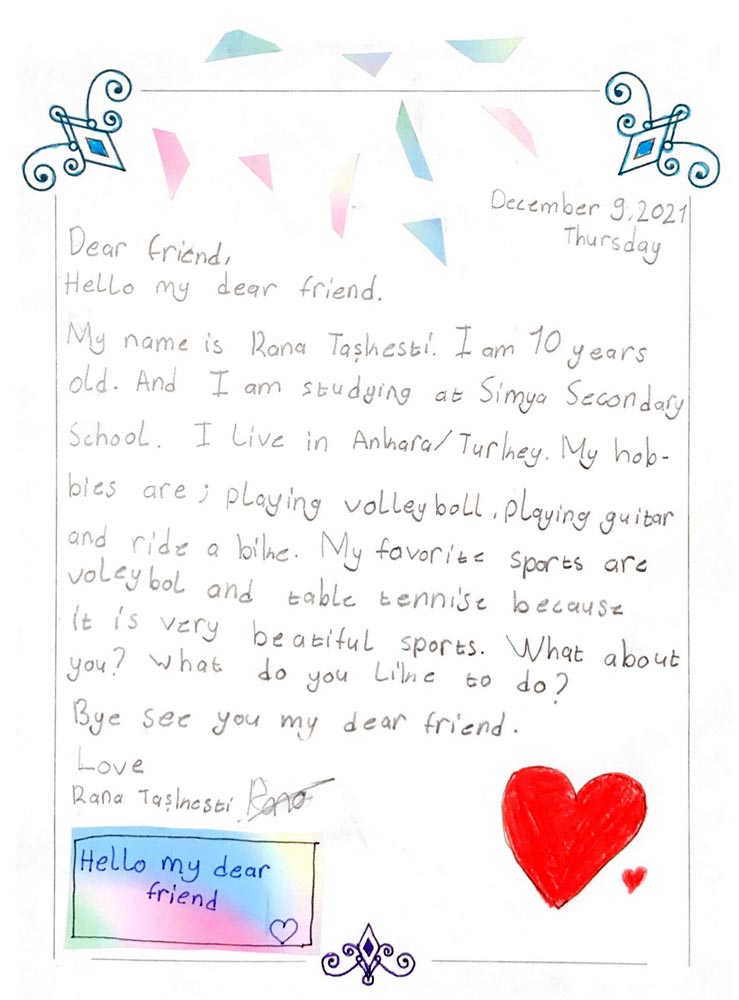 December 9, 2021
Thursday
Dear friend,
Hello my dear friend.
My name is Rana Taşkesti. I am 10 years
old. And I am studying at Simya Secondary
School. I Live in Ankara/Turkey. My hob-
bies are; playing volleyboll, playing guitar
and ride a bike. My favorite sports are
voleybol and table tennise because
it is very beatiful sports. What about
you? What do you Like to do?
Bye see you my dear friend.
Love
Rana Taşkesti Rana
Hello my dear
friend